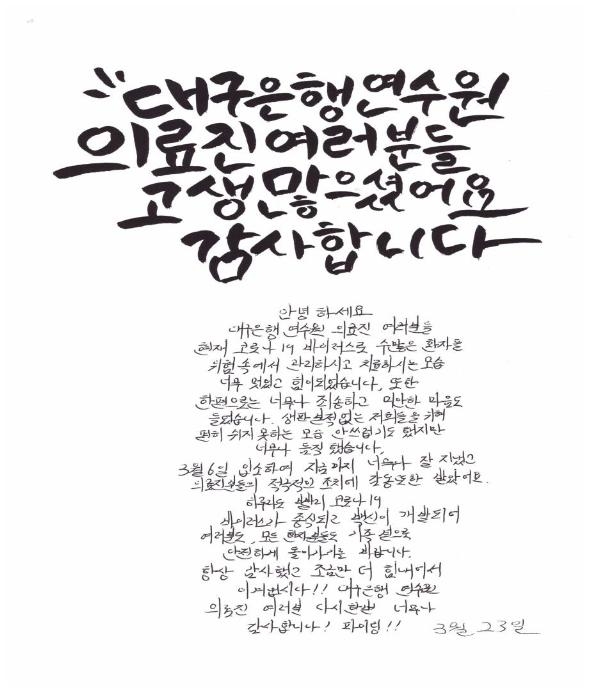 대구은행연수원
의료진여러분들
고생많으셨어요
감사합니다
안녕하세요
대구은행 연수원 의료진 여러분들
현재 코로나19 바이러스로 수많은 환자를
위험속에서 관리하시고 치료하시는 모습
너무 멋있고 힘이되었습니다, 또한
한편으로는 너무나 죄송하고 미안한 마음도
들었습니다. 생판 일면식없는 저희들을 위해
편히 쉬지 못하는 모습 안쓰럽기도 했지만
너무나 듬직 했습니다,
3월6일 입소하여 지금까지 너무나 잘 지냈고
의료진분들의 적극적인 조치에 감동또한 살았어요.
하루라도 빨리 코로나19
바이러스가 종식되고 백신이 개발되어
여러분도, 모든 환자분들도 가족 곁으로
안전하게 돌아가기를 바랍니다.
항상 감사했고 조금만 더 힘내어서
이겨냅시다!! 대구은행 연수원
의료진 여러분 다시한번 너무나
감사합니다! 파이팅!!
3월 23일